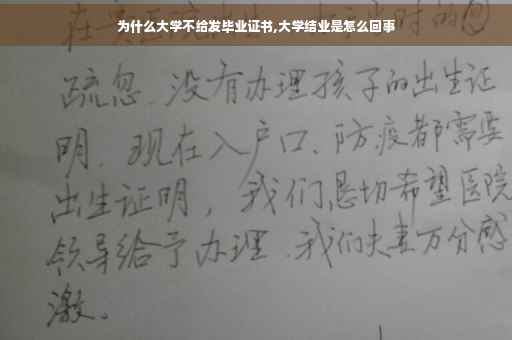 为什么大学不给发毕业证书,大学结业是怎么回事
疏忽、没有办理孩子的出生证
明、现在入户口、防疫都需要
出生证明，我们恳切希望医院
领导给予办理、我们夫妻万分感
激。